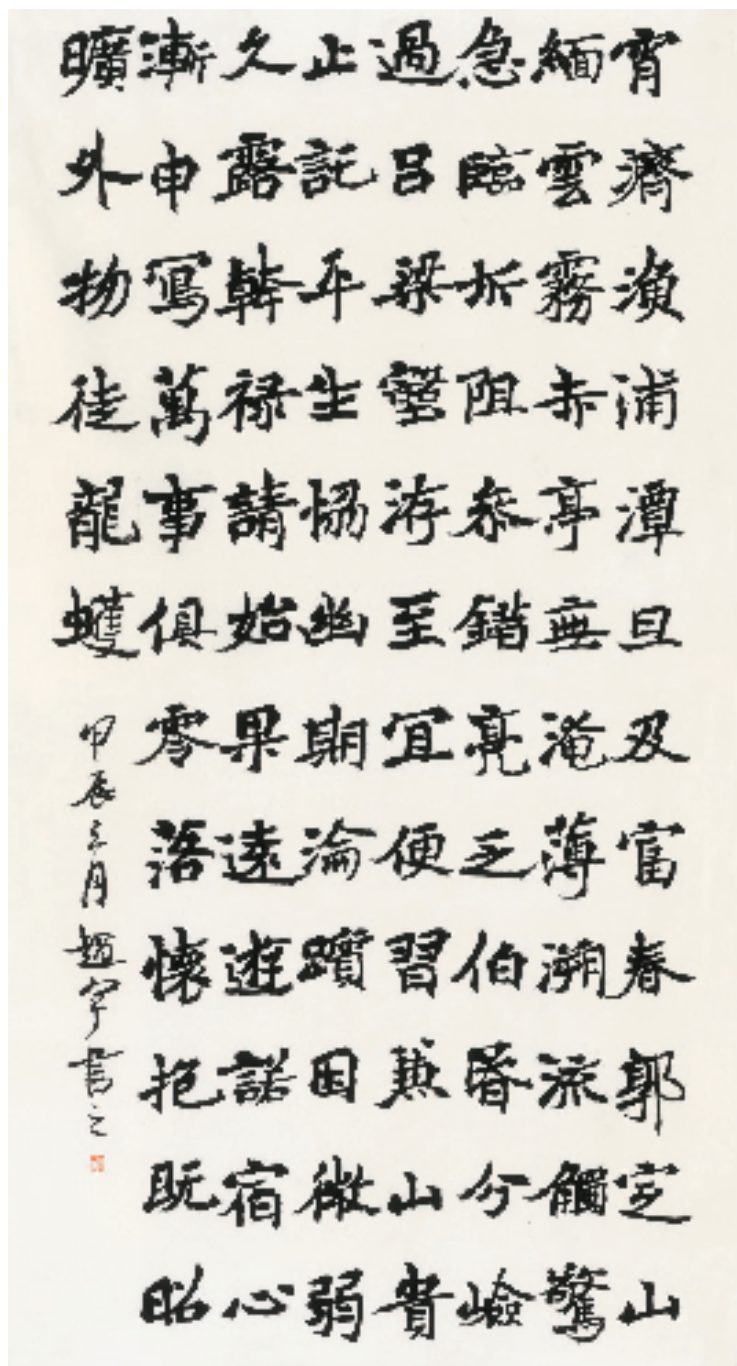 宵濟漁浦潭旦及富春郭定山
緬雲霧赤亭無淹薄溯流觸驚
急臨圻阻参錯亮乏伯昏分嶮
過呂梁壑洊至宜便習兼山貴
止託平生恊幽期淪躓困微弱
久露幹禄請始果遠遊諾宿心
漸申寫萬事俱零落懷抱既昭
曠外物徒龍蠖
甲辰三月趙宇書之